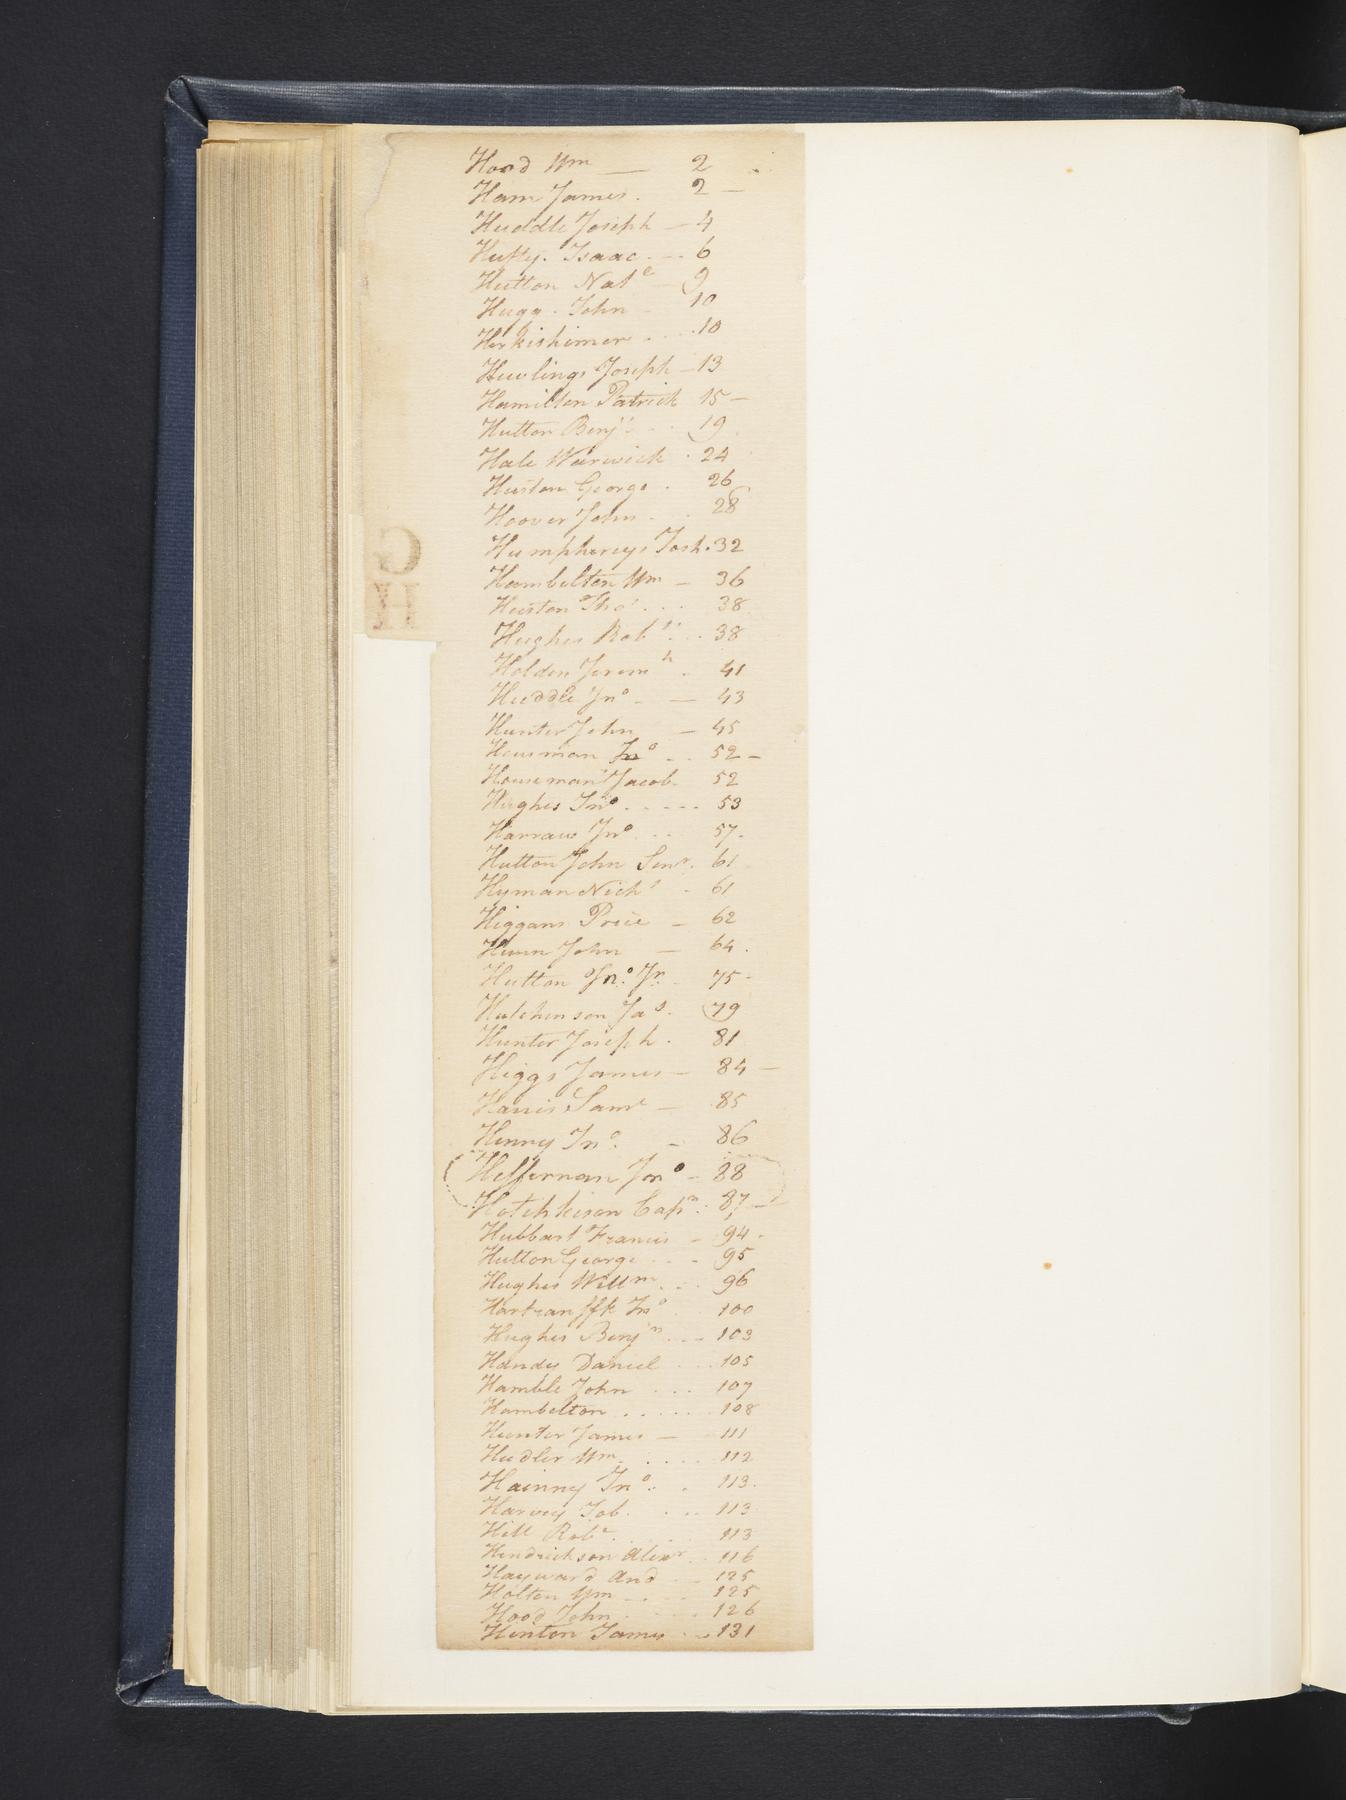 Hood Wm — 2
Ham James. 2 —
Huddle Joseph — 4
Hufty. Isaac. -- 6
Hutton Natl — 9
Hugg. John - 10
Herkishimer . . . 10
Hewlings Joseph — 13
Hamilton Patrick 15 —
Hutton Benjn . . 19
Hale Warwick . 24
Huston George . 26
Hoover John . . 28
Humphereys Josh. 32
Hambelton Wm — 36
Huston Thos . . . 38
Hughes Robt . . . 38
Holden Jeremh . 41
Huddle Jno - — 43
Hunter John — 45
Housman Jno . . 52 —
Houseman Jacob. 52
Hughes Jno . - - - - 53
Harraw Jno . . . 57.
Hutton John Senr. 61
Hyman Nichs - 61
Higgans Price — 62
Hunn John — 64.
Hutton Jno. Jr. - 75 -
Hutchenson Jas. 79
Hunter Joseph . 81
Higgs James — 84 —
Harris Saml — 85
Henny Jno. - 86
Heffernan Jno - 88
Hotchkison Capn. 87 —
Hubbart Francis - 94.
Hutton George . . - 95
Hughes Willm . . . 96
Hartranffk Jno . 100
Hughes Benjn . . . 103
Handy Daniel . . . 105
Hamble John . . . 107
Hambelton . . . . . . 108
Hunter James — 111
Hudler Wm . . . . . 112
Hainny Jno . . 113.
Harvey Job . . . . 113
Hill Robt . . . . 113
Hendrickson Alexr . . 116
Hayward And . — 125
Holten Wm — . . . 125
Hood John . . . . 126
Hinton James . . . 131
G
H